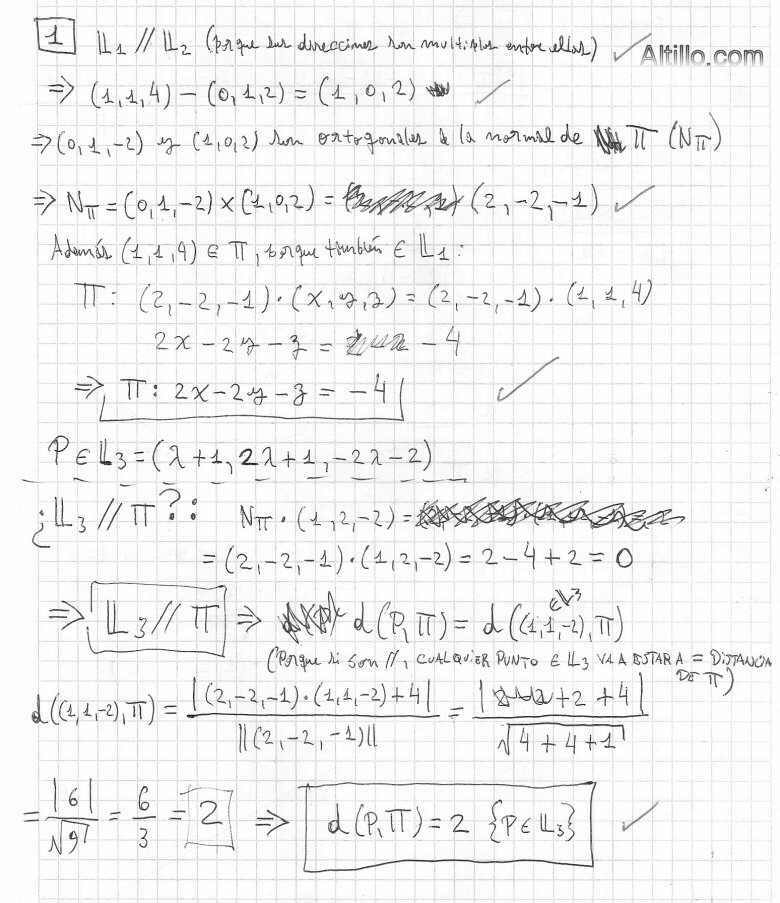 1 𝕃₁ // 𝕃₂ (porque sus direcciones son multiplos entre ellas) ✓ Altillo.com
⇒ (1,1,4) − (0,1,2) = (1,0,2) ✓
⇒ (0,1,-2) y (1,0,2) son ortogonales a la normal de Π (NΠ)
⇒ NΠ = (0,1,-2) × (1,0,2) = (2,-2,-1) ✓
Además (1,1,4) ∈ Π, porque también ∈ 𝕃₁:
Π: (2,-2,-1)·(x,y,z) = (2,-2,-1)·(1,1,4)
2x − 2y − z = −4
⇒ Π: 2x−2y−z = −4 ✓
P ∈ 𝕃₃ = (λ+1, 2λ+1, -2λ-2)
¿𝕃₃ // Π?: NΠ · (1,2,-2) =
= (2,-2,-1)·(1,2,-2) = 2−4+2 = 0
⇒ 𝕃₃ // Π ⇒ d(P,Π) = d((1,1,-2),Π)
∈𝕃3
(Porque si son //, CUALQUIER PUNTO ∈ 𝕃₃ VA A ESTAR A = DISTANCIA
DE Π)
d((1,1,-2),Π) = |(2,-2,-1)·(1,1,-2)+4| / ||(2,-2,-1)|| = |+2+4| / √4+4+1
= |6| / √9 = 6/3 = 2 ⇒ d(P,Π) = 2 {P∈𝕃₃} ✓